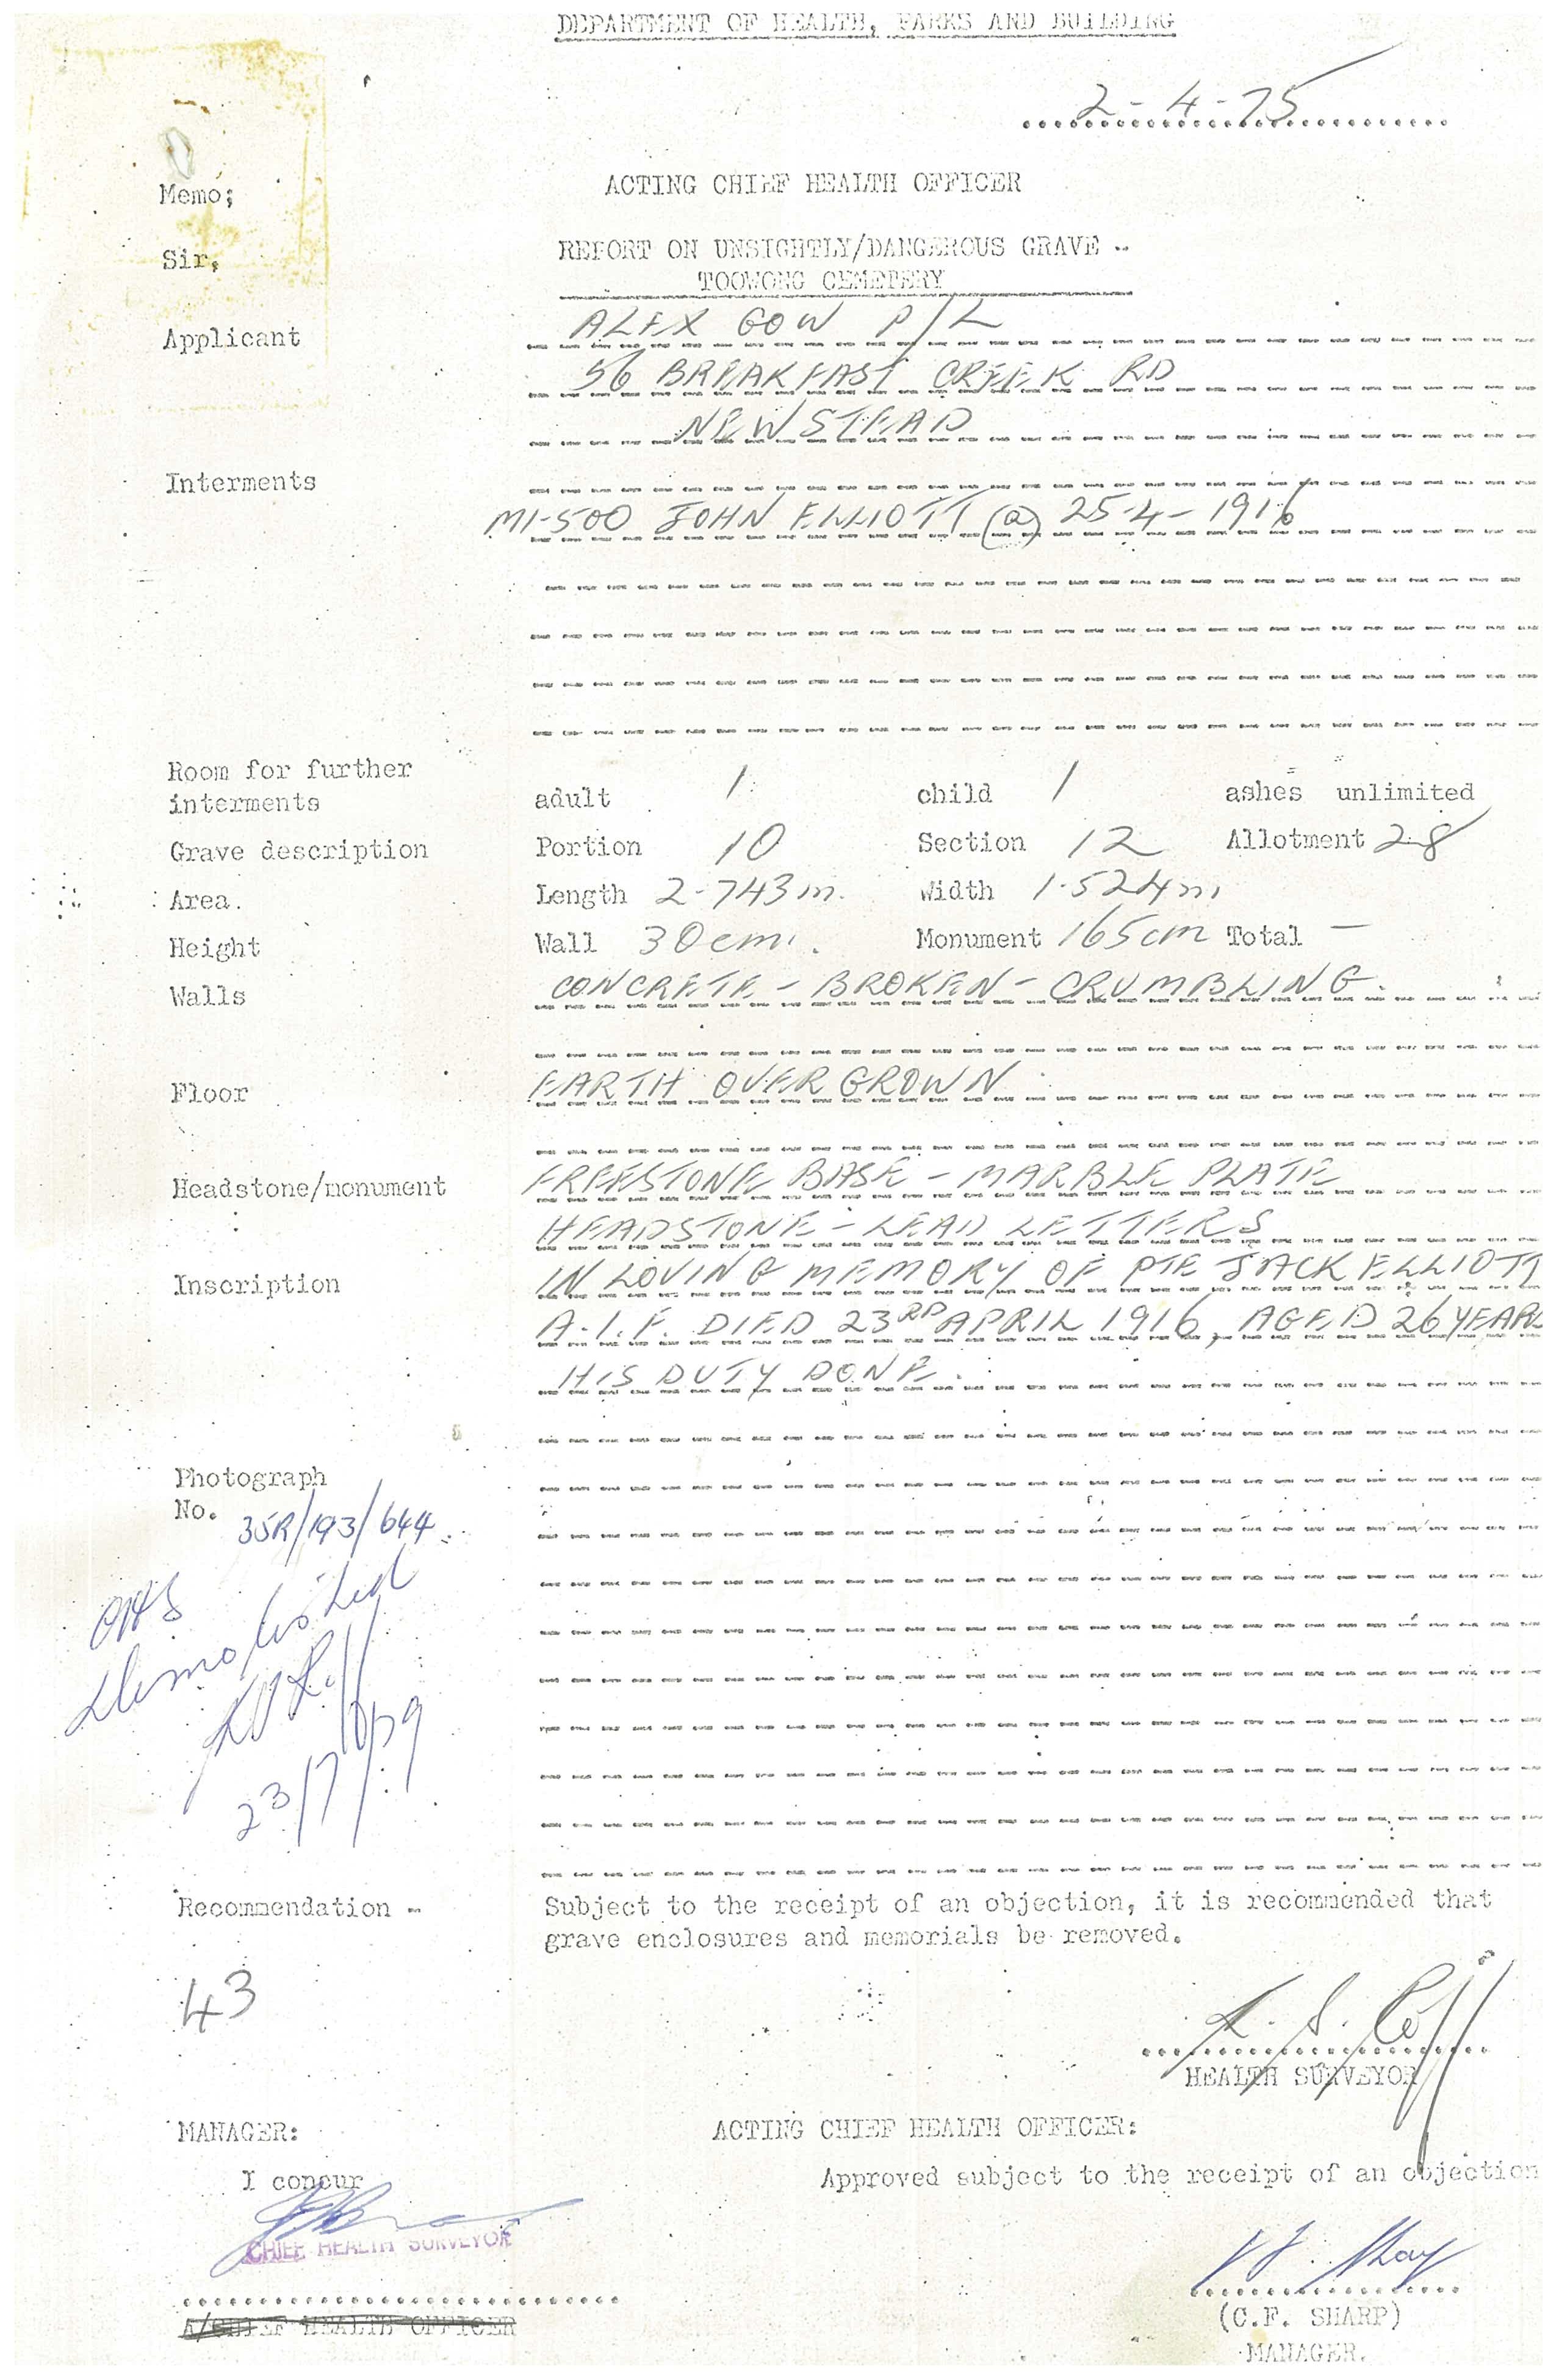 DEPARTMENT OF HEALTH, PARKS AND BUILDING
2-4-75
ACTING CHIEF HEALTH OFFICER
Memo;
Sir,
REPORT ON UNSIGHTLY/DANGEROUS GRAVE -
TOOWONG CEMETERY
Applicant
ALEX GOW P/L
56 BREAKFAST CREEK RD
NEWSTEAD
Interments
M1-500 JOHN ELLIOTT (a) 25-4-1916
Room for further
interments adult 1 child 1 ashes unlimited
Grave description Portion 10 Section 12 Allotment 28
Area. Length 2-743m. Width 1.524m
Height Wall 30cm. Monument 165cm Total -
Walls CONCRETE - BROKEN - CRUMBLING.
Floor EARTH OVERGROWN
Headstone/monument FREESTONE BASE - MARBLE PLATE
HEADSTONE - LEAD LETTERS
Inscription IN LOVING MEMORY OF PTE JACK ELLIOTT
A.I.F. DIED 23RD APRIL 1916, AGED 26 YEARS
HIS DUTY DONE.
Photograph
No. 35R/193/644.
Demolished
23/7/79
Recommendation - Subject to the receipt of an objection, it is recommended that
grave enclosures and memorials be removed.
43
HEALTH SURVEYOR
MANAGER: ACTING CHIEF HEALTH OFFICER:
I concur Approved subject to the receipt of an objection
CHIEF HEALTH SURVEYOR
A/CHIEF HEALTH OFFICER
(C.F. SHARP)
MANAGER.